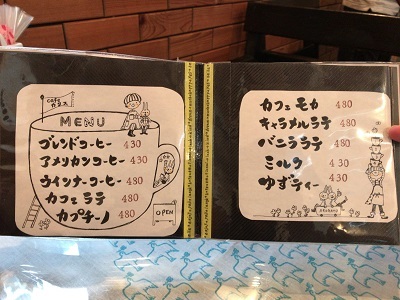 MENU
ブレンドコーヒー 430
アメリカンコーヒー 430
ウインナーコーヒー 480
カフェラテ 480
カプチーノ 480
OPEN
カフェモカ 480
キャラメルラテ 480
バニララテ 480
ミルク 430
ゆずティー 430